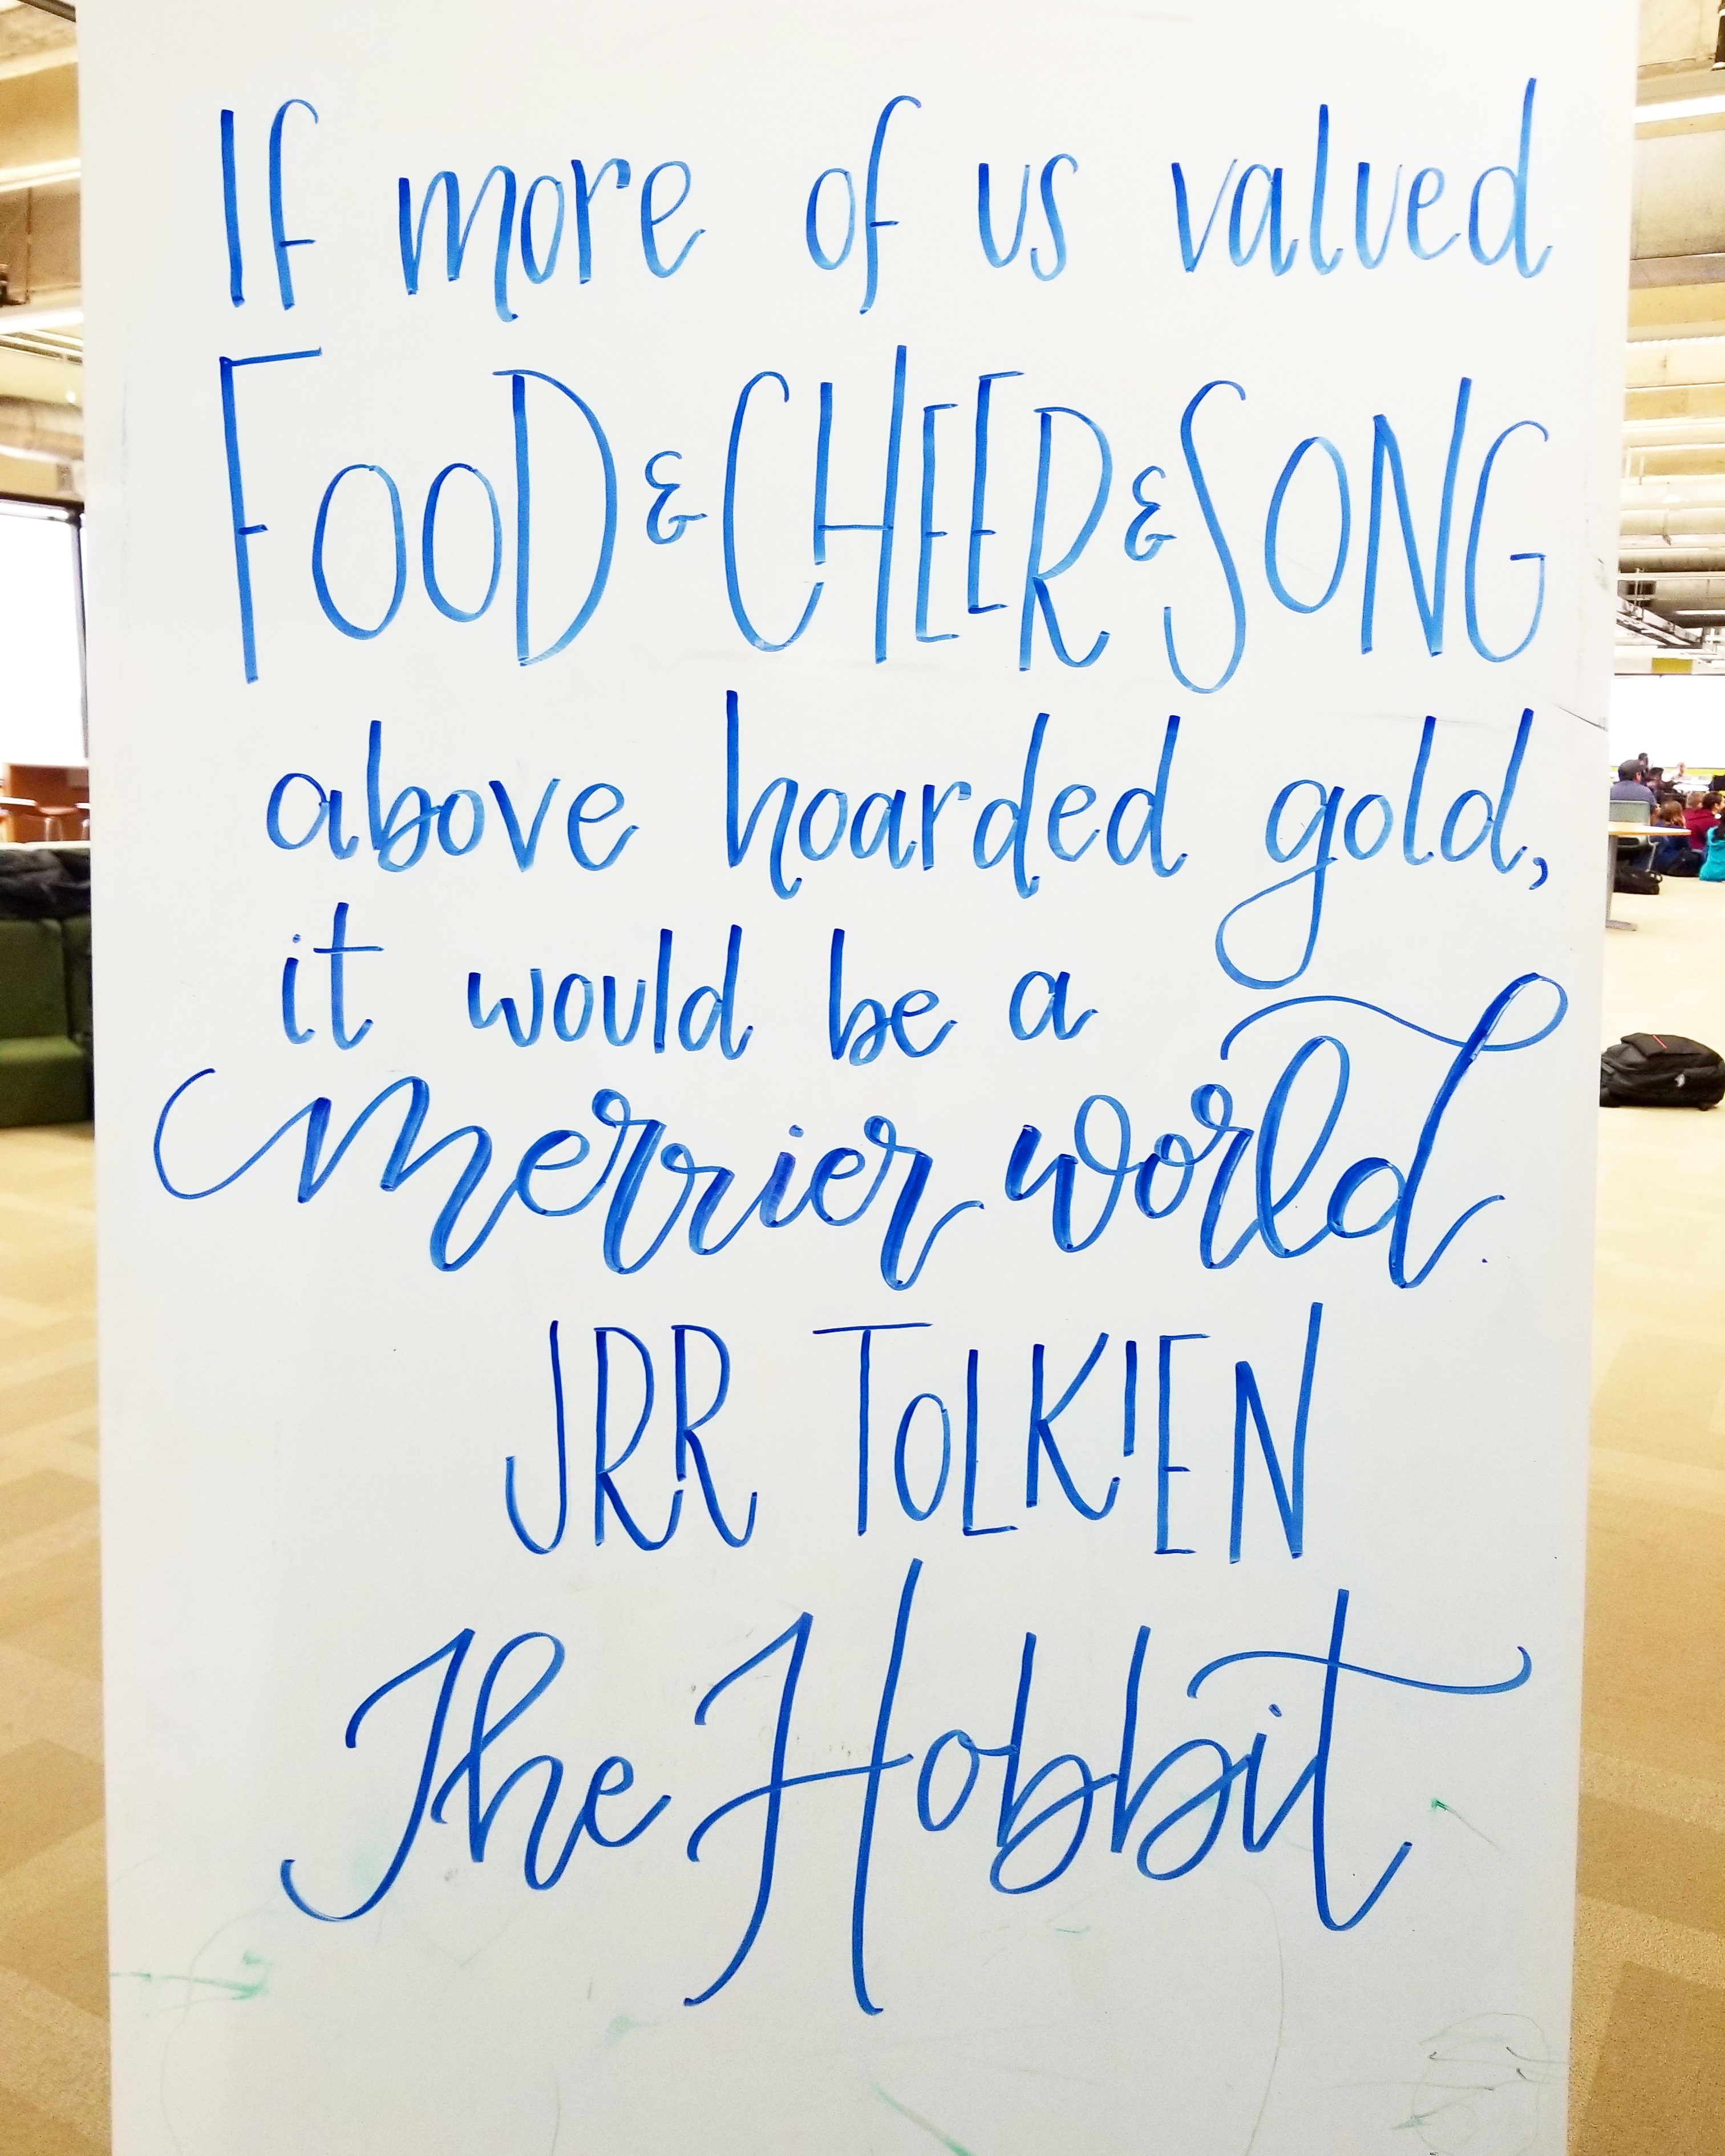 If more of us valued
FOOD & CHEER & SONG
above hoarded gold,
it would be a
merrier world.
JRR TOLKIEN
The Hobbit